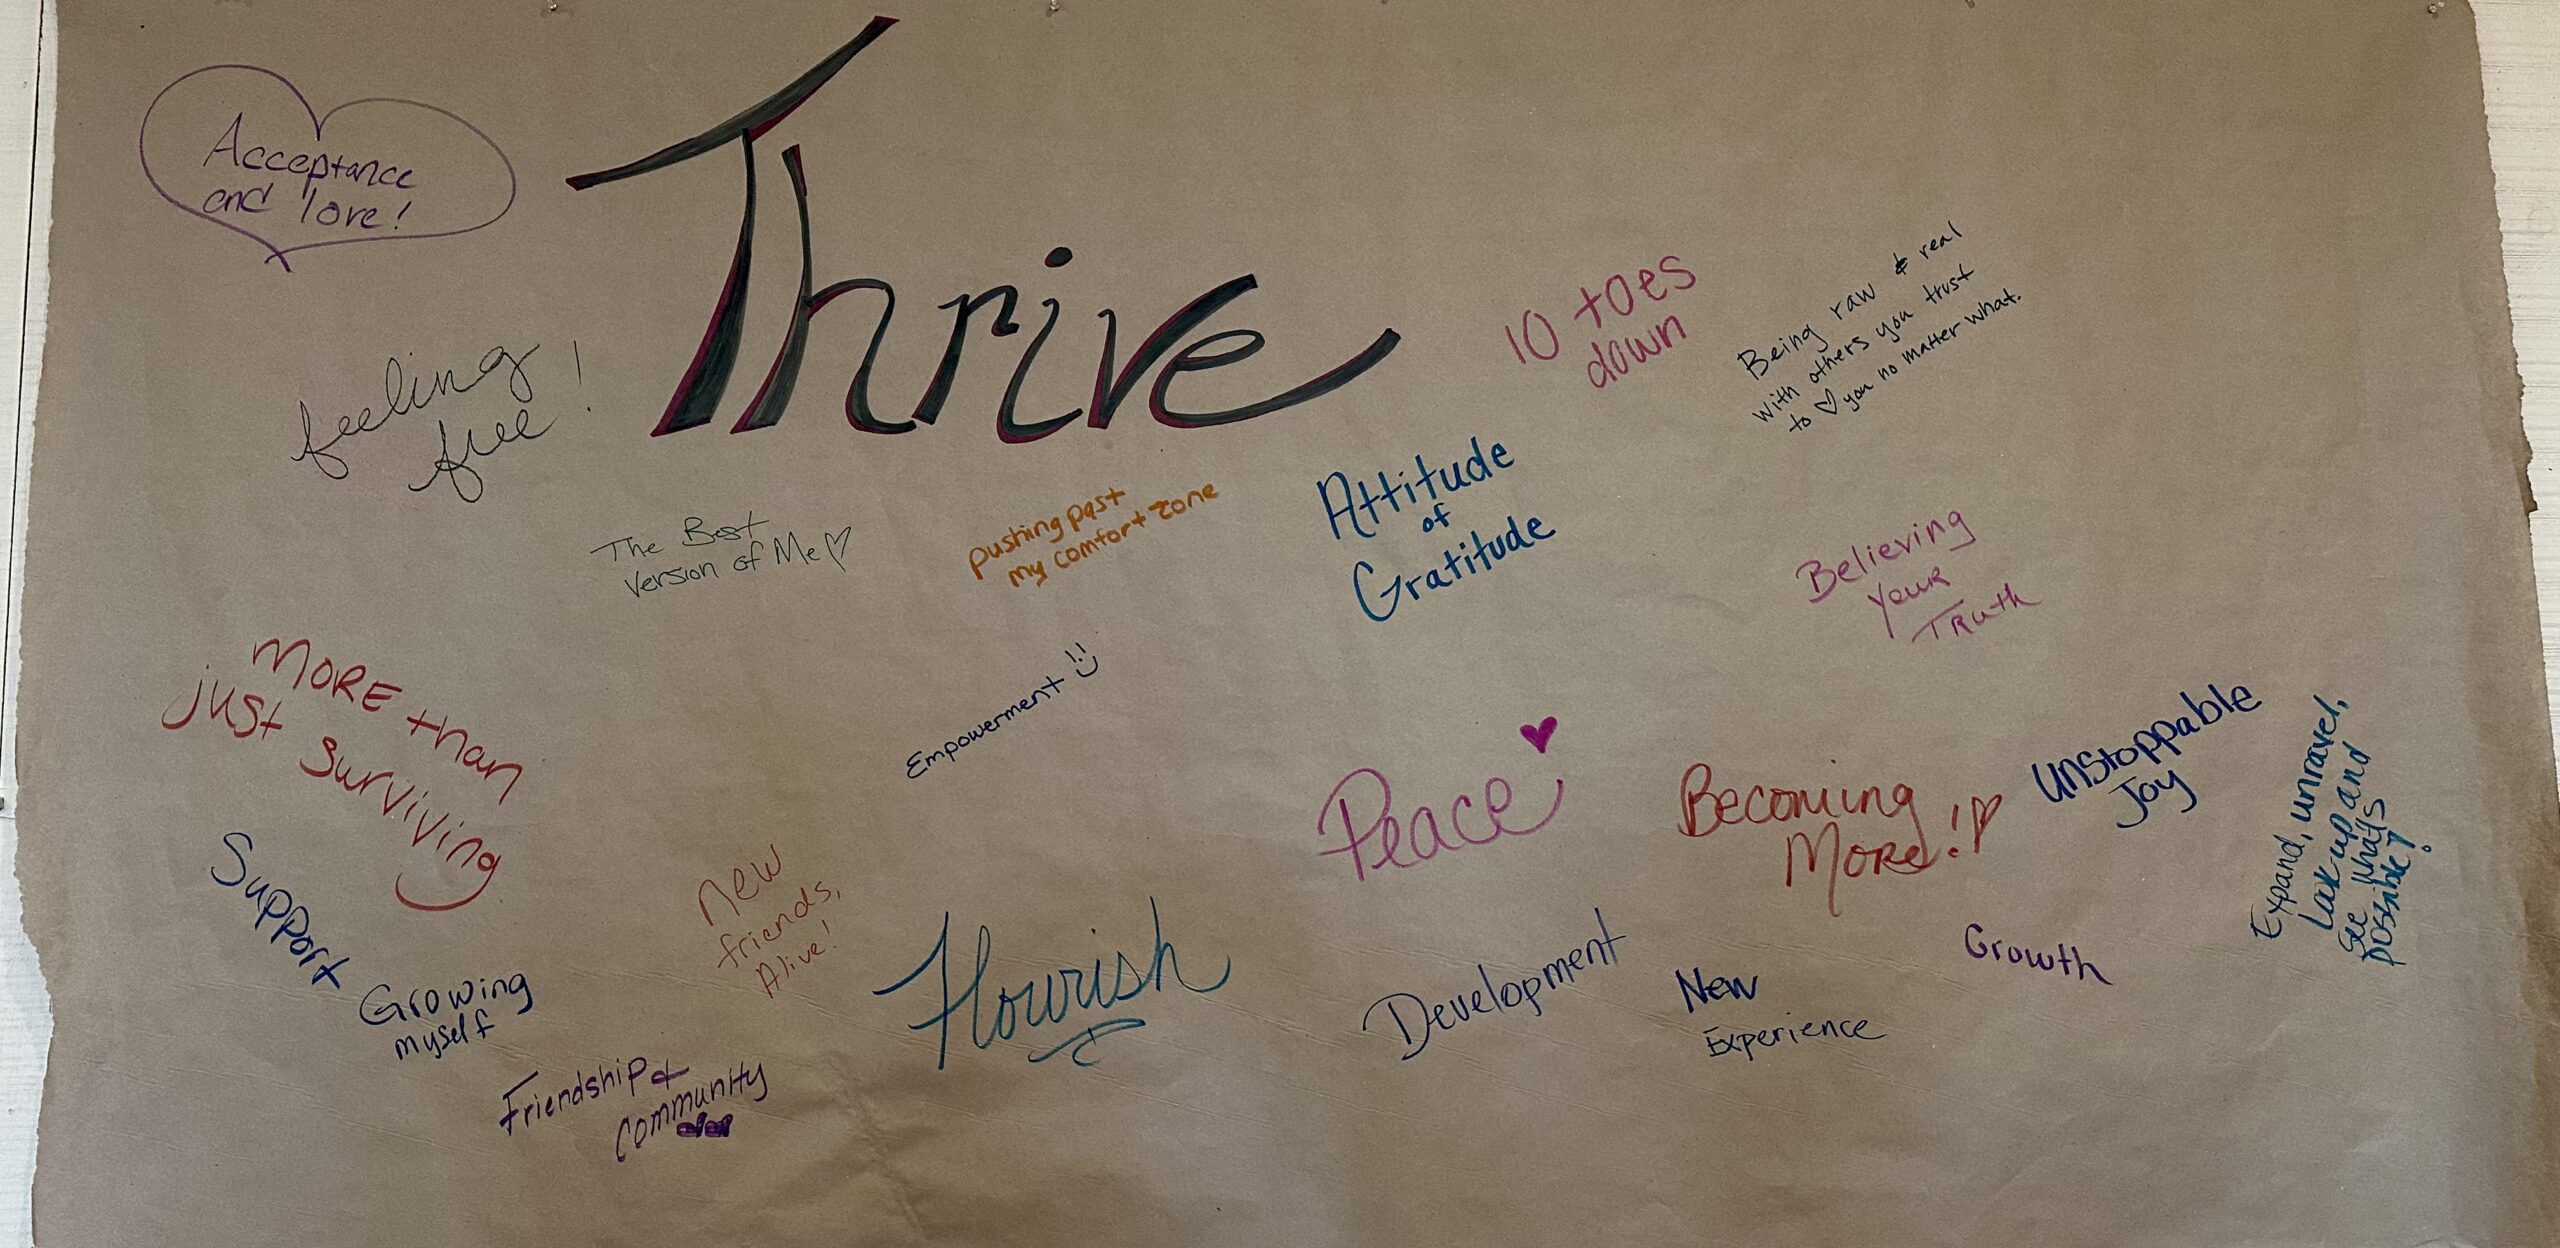 Thrive
Acceptance
and love!
feeling
free!
10 toes
down
Being raw & real
with others you trust
to ♡ you no matter what.
The Best
Version of Me ♡
pushing past
my comfort zone
Attitude
of
Gratitude
Believing
your
Truth
More than
just surviving
Empowerment
Peace
Becoming
More!
Unstoppable
Joy
Expand, unravel,
Look up and
see what's
possible!
Support
Growing
myself
new
friends,
Alive!
Flourish
Development
New
Experience
Growth
Friendship &
Community